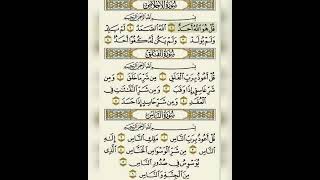 سُورَةُ الإِخْلَاصِ
بِسْمِ اللَّهِ الرَّحْمَٰنِ الرَّحِيمِ
قُلْ هُوَ اللَّهُ أَحَدٌ ۝ اللَّهُ الصَّمَدُ ۝ لَمْ يَلِدْ
وَلَمْ يُولَدْ ۝ وَلَمْ يَكُن لَّهُ كُفُوًا أَحَدٌ ۝
سُورَةُ الْفَلَقِ
بِسْمِ اللَّهِ الرَّحْمَٰنِ الرَّحِيمِ
قُلْ أَعُوذُ بِرَبِّ الْفَلَقِ ۝ مِن شَرِّ مَا خَلَقَ ۝
وَمِن شَرِّ غَاسِقٍ إِذَا وَقَبَ ۝ وَمِن شَرِّ النَّفَّاثَاتِ فِي
الْعُقَدِ ۝ وَمِن شَرِّ حَاسِدٍ إِذَا حَسَدَ ۝
سُورَةُ النَّاسِ
بِسْمِ اللَّهِ الرَّحْمَٰنِ الرَّحِيمِ
قُلْ أَعُوذُ بِرَبِّ النَّاسِ ۝ مَلِكِ النَّاسِ ۝ إِلَٰهِ
النَّاسِ ۝ مِن شَرِّ الْوَسْوَاسِ الْخَنَّاسِ ۝ الَّذِي
يُوَسْوِسُ فِي صُدُورِ النَّاسِ ۝
مِنَ الْجِنَّةِ وَالنَّاسِ ۝